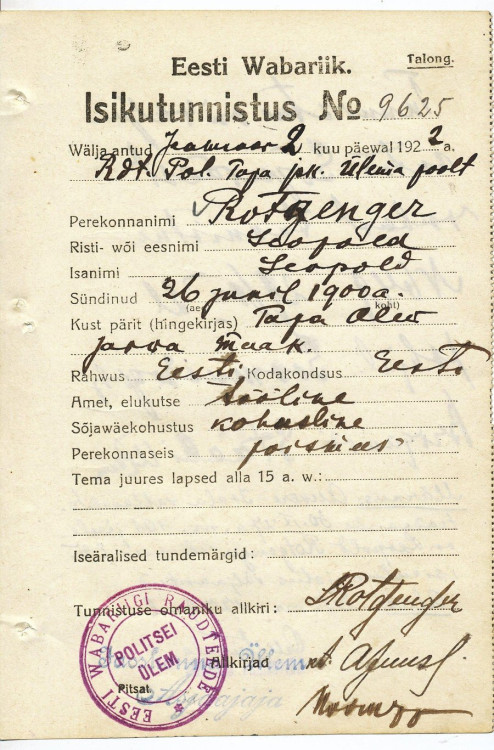 Talong.
Eesti Wabariik.
Isikutunnistus № 9625
Wälja antud 2 kuu päewal 1922 a.
Rdt. Pol. Tapa jsk. Ülema poolt
Perekonnanimi Rotgenger
Risti- wõi eesnimi Leopold
Isanimi Leopold
Sündinud 26 juulil 1900a.
(aeg koht)
Kust pärit (hingekirjas) Tapa Alew
Järwa Maak.
Rahwus Eesti Kodakondsus Eesti
Amet, elukutse tööline
Sõjawäekohustus kohusline
Perekonnaseis poismees
Tema juures lapsed alla 15 a. w.:
Iseäralised tundemärgid:
Tunnistuse omaniku allkiri: LRotgenger
EESTI WABARIIGI RAUDTEEDE
POLITSEI
ÜLEM
Allkirjad
Pitsat
Asjaajaja